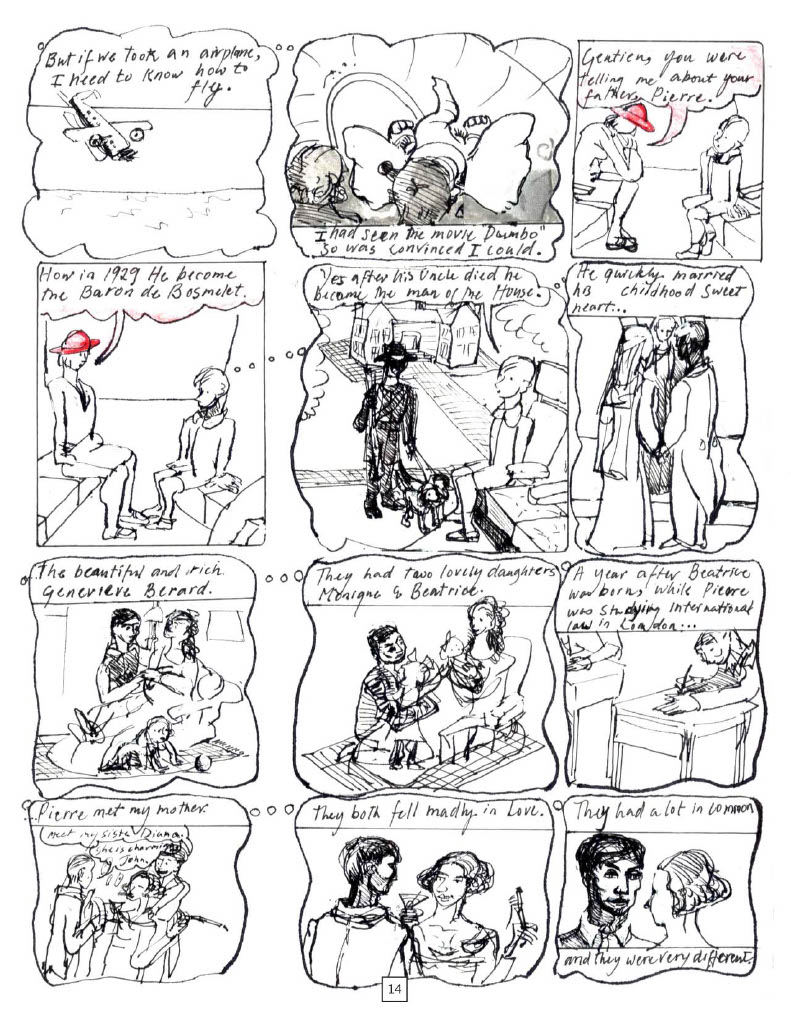 But if we took an airplane,
I need to know how to
fly.
I had seen the movie Dumbo"
so was convinced I could.
Gentien, you were
telling me about your
father, Pierre.
How in 1929 He become
the Baron de Bosmelet.
Yes after his Uncle died he
became the man of the House.
He quickly married
his childhood Sweet
heart...
The beautiful and rich
Genevieve Berard.
They had two lovely daughters
Monique & Beatrice.
A year after Beatrice
was born, while Pierre
was studying international
law in London...
Pierre met my mother.
meet my sister Diana
she is charming
John
They both fell madly in Love.
They had a lot in common
and they were very different.
14